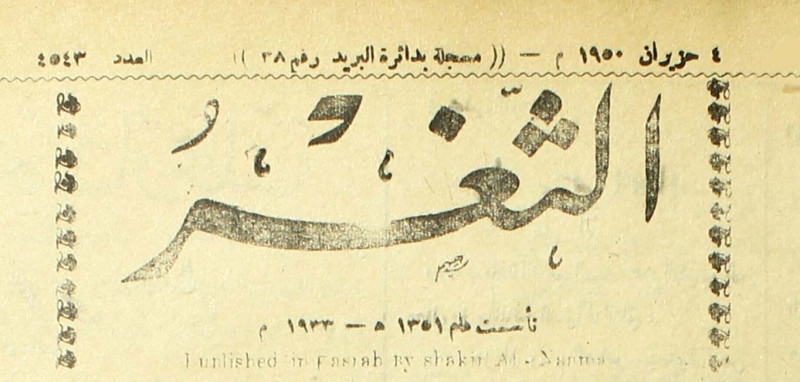 ٤ حزيران ١٩٥٠ م — (( مسجلة بدائرة البريد رقم ٣٨ )) العدد ٤٥٤٣
الثغر
تأسست عام ١٣٥١ ه — ١٩٣٣ م
Published in Basrah By Shakir Al-